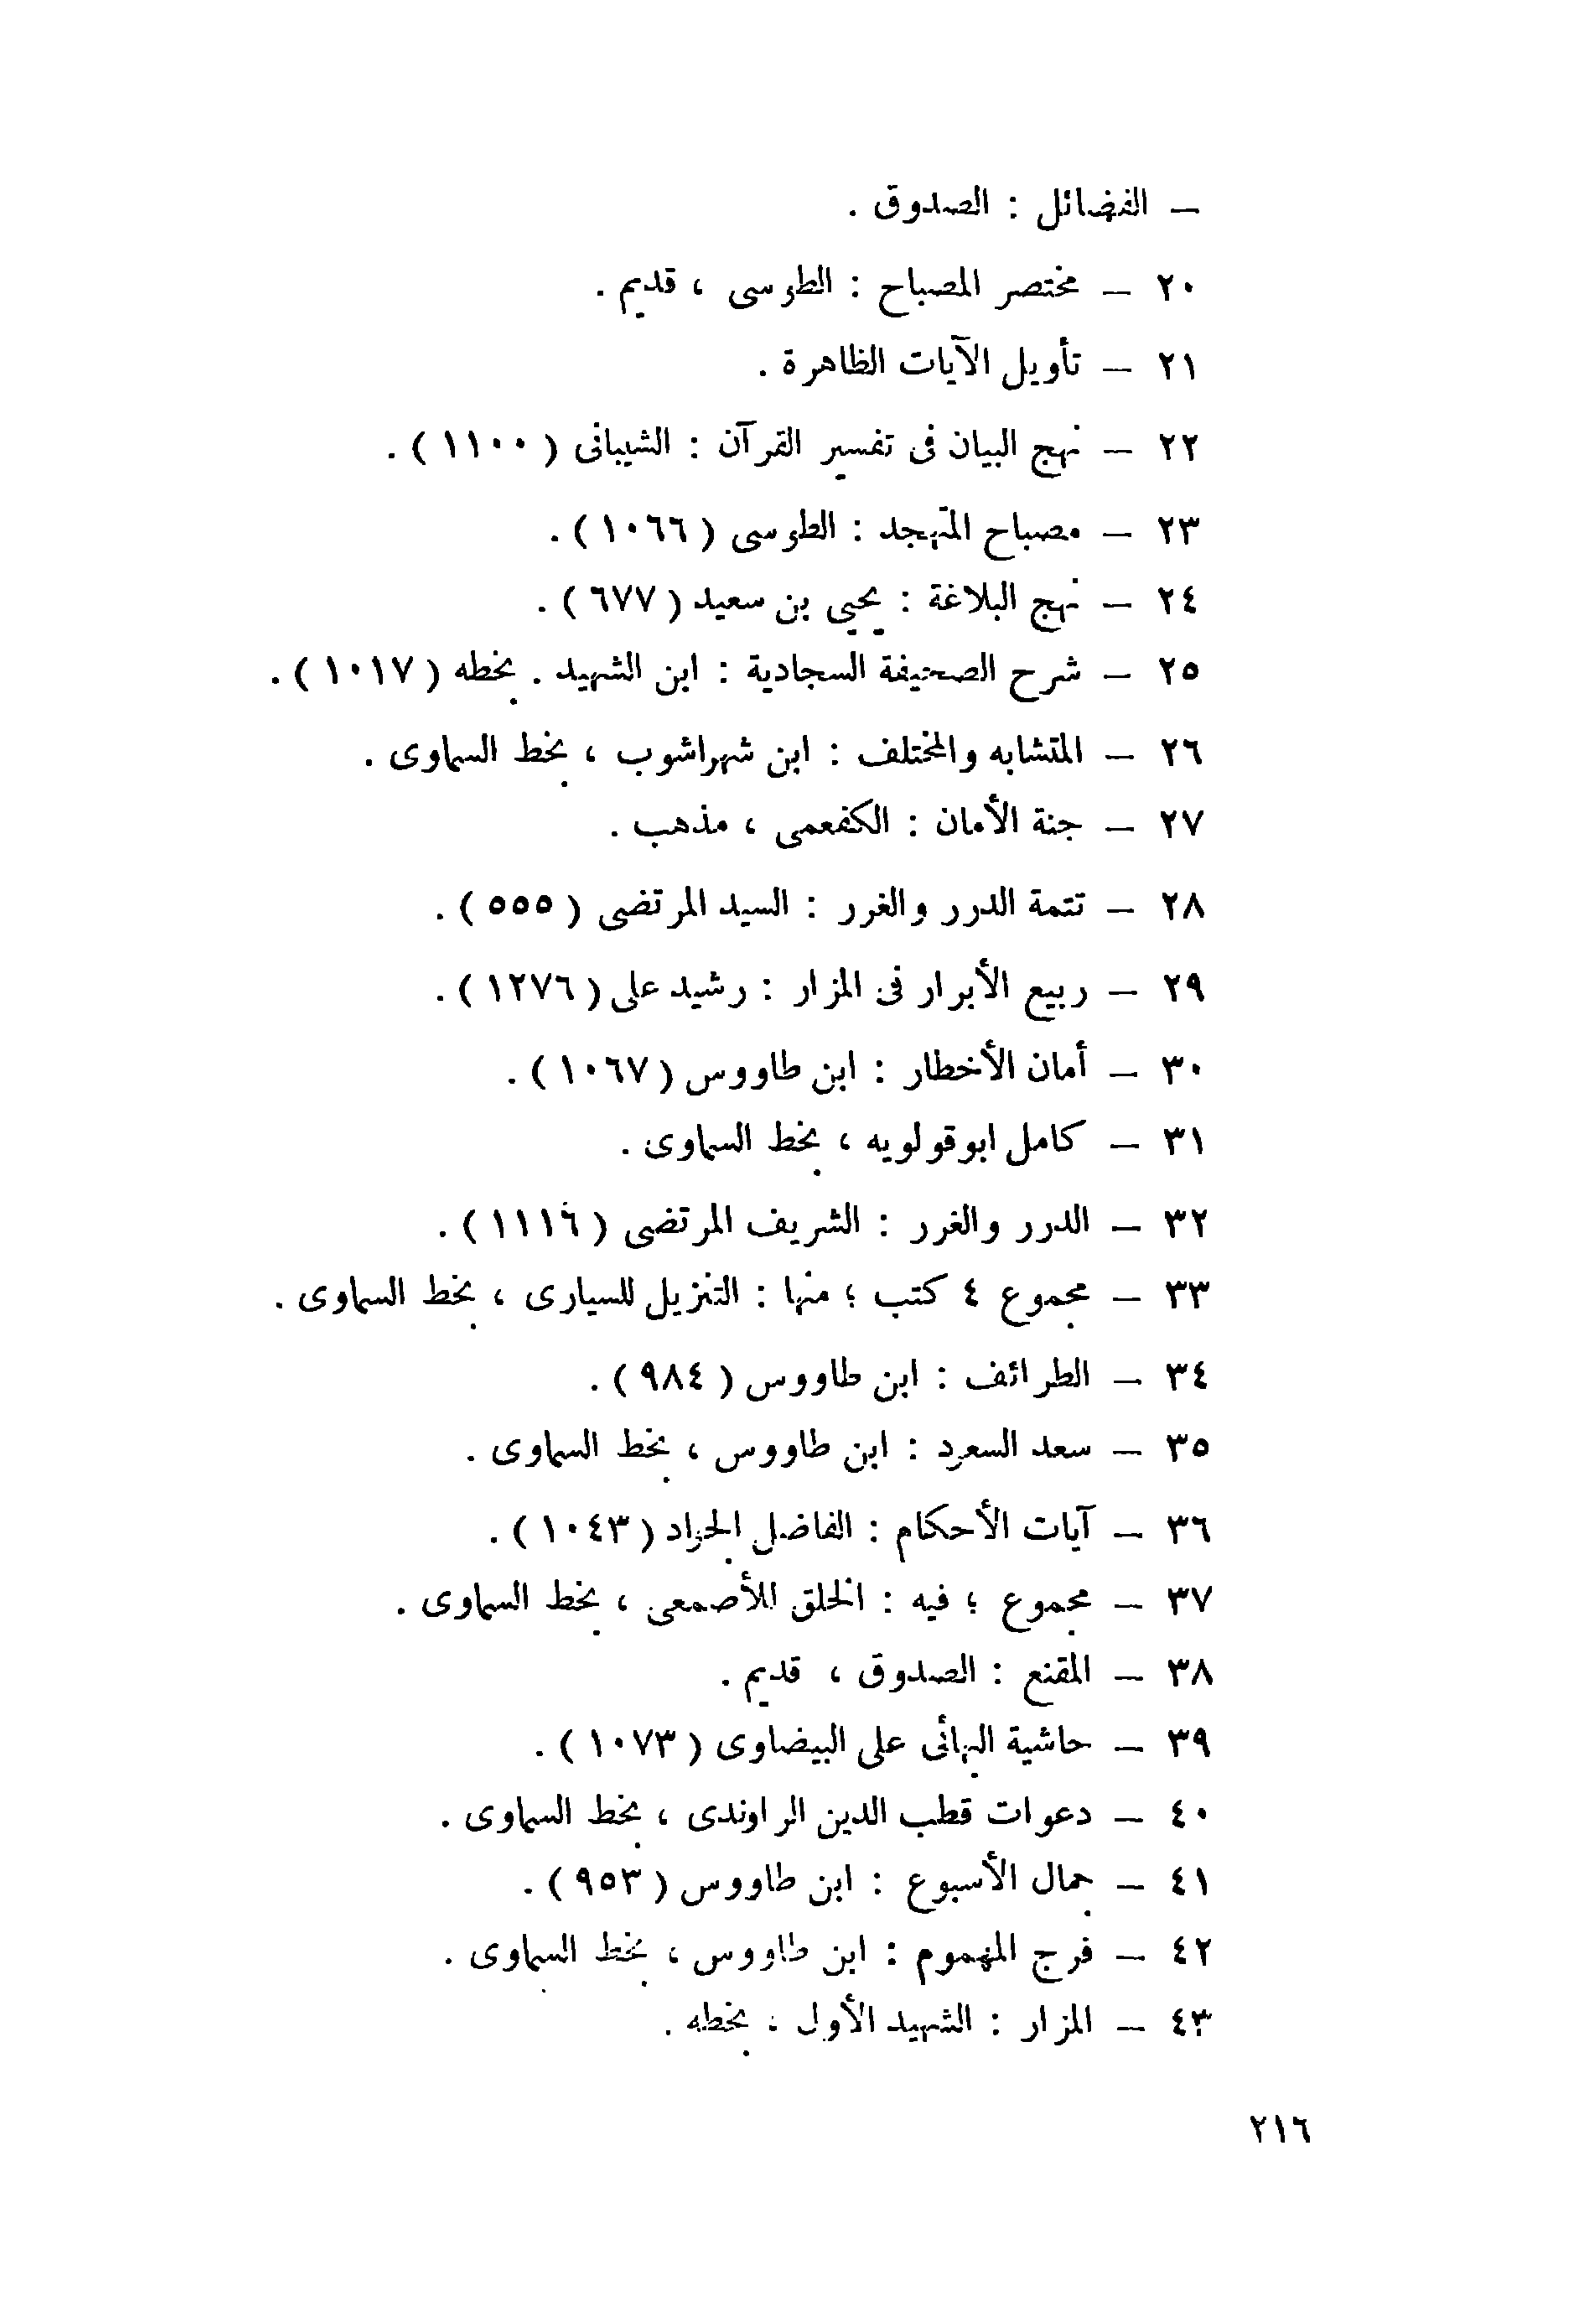 – الفضائل : الصدوق .
٢٠ – مختصر المصباح : الطوسى ، قديم .
٢١ – تأويل الآيات الظاهرة .
٢٢ – نهج البيان فى تفسير القرآن : الشيبانى ( ١١٠٠ ) .
٢٣ – مصباح المتهجد : الطوسى ( ١٠٦٦ ) .
٢٤ – نهج البلاغة : يحيى بن سعيد ( ٦٧٧ ) .
٢٥ – شرح الصحيفة السجادية : ابن الشهيد . بخطه ( ١٠١٧ ) .
٢٦ – المتشابه والمختلف : ابن شهراشوب ، بخط السماوى .
٢٧ – جنة الأمان : الكفعمى ، مذهب .
٢٨ – تتمة الدرر والغرر : السيد المرتضى ( ٥٥٥ ) .
٢٩ – ربيع الأبرار فى المزار : رشيد على ( ١٢٧٦ ) .
٣٠ – أمان الأخطار : ابن طاووس ( ١٠٦٧ ) .
٣١ – كامل ابوقولويه ، بخط السماوى .
٣٢ – الدرر والغرر : الشريف المرتضى ( ١١١٦ ) .
٣٣ – مجموع ٤ كتب ؛ منها : التنزيل للسيارى ، بخط السماوى .
٣٤ – الطرائف : ابن طاووس ( ٩٨٤ ) .
٣٥ – سعد السعود : ابن طاووس ، بخط السماوى .
٣٦ – آيات الأحكام : الفاضل الجواد ( ١٠٤٣ ) .
٣٧ – مجموع ؛ فيه : الخلق للأصمعى ، بخط السماوى .
٣٨ – المقنع : الصدوق ، قديم .
٣٩ – حاشية البهائى على البيضاوى ( ١٠٧٣ ) .
٤٠ – دعوات قطب الدين الراوندى ، بخط السماوى .
٤١ – جمال الأسبوع : ابن طاووس ( ٩٥٣ ) .
٤٢ – فرج المهموم : ابن طاووس ، بخط السماوى .
٤٣ – المزار : الشهيد الأول ، بخطه .
٢١٦